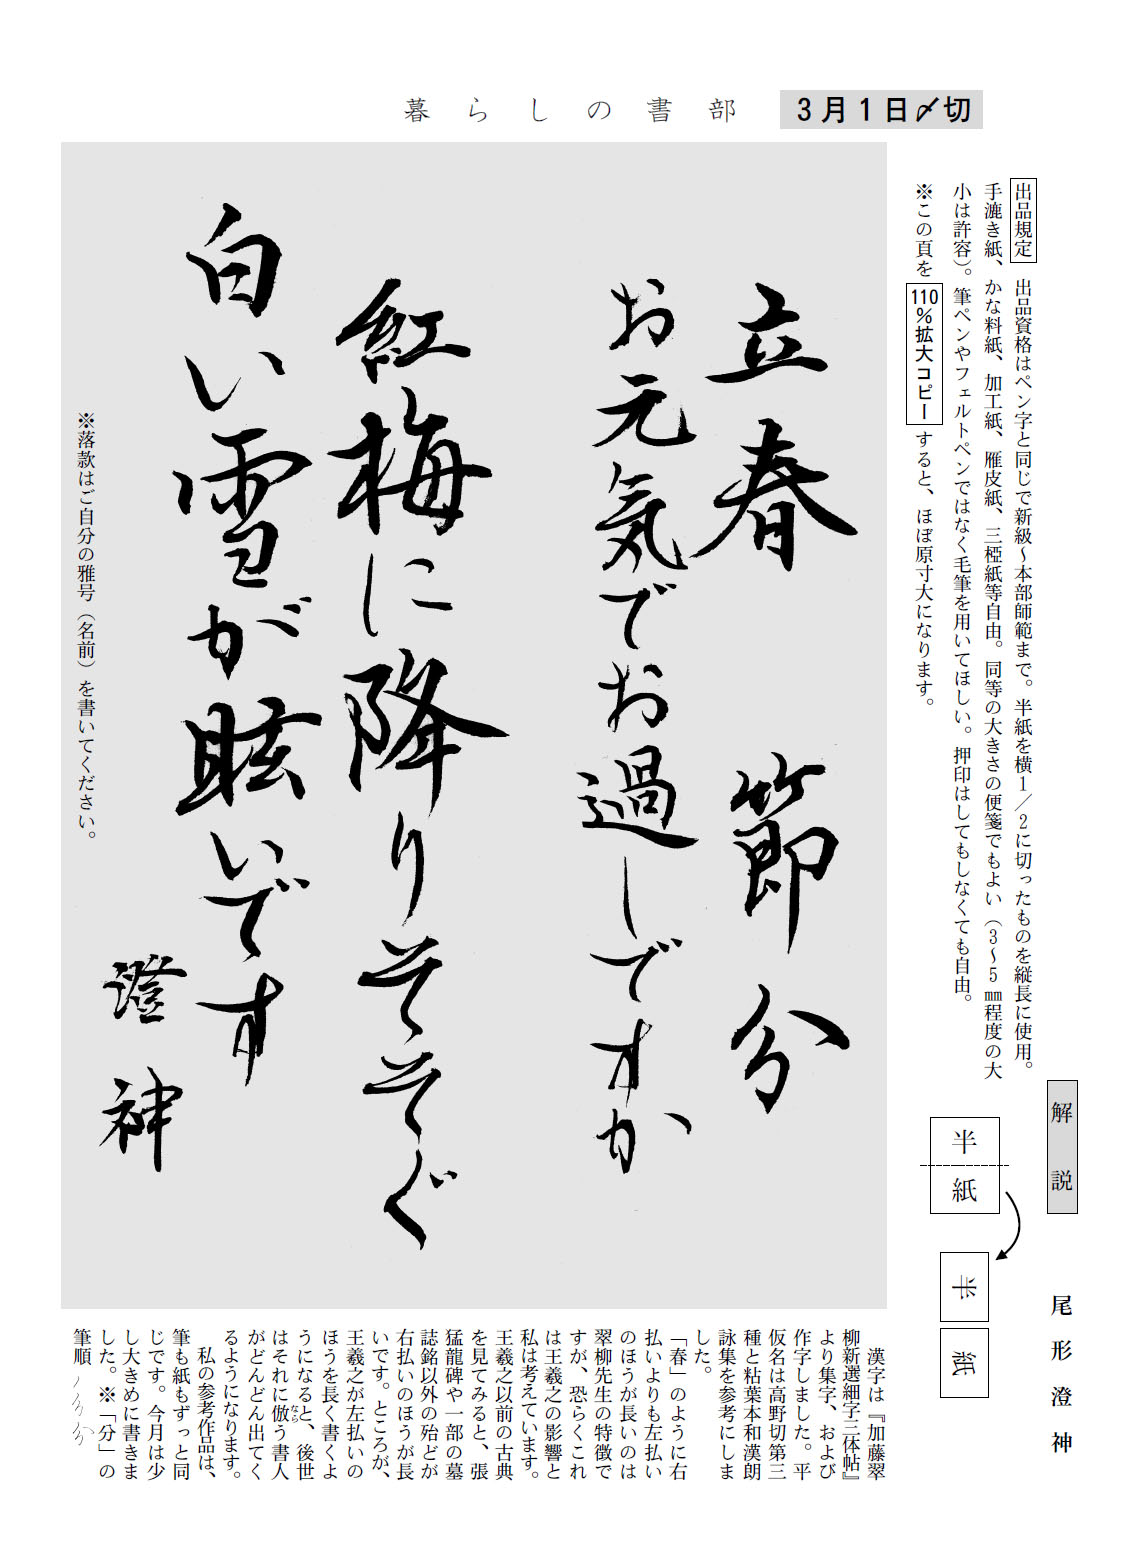 暮らしの書部
3月1日〆切
出品規定 出品資格はペン字と同じで新級～本部師範まで。半紙を横1／2に切ったものを縦長に使用。
手漉き紙、かな料紙、加工紙、雁皮紙、三椏紙等自由。同等の大きさの便箋でもよい（3～5㎜程度の大
小は許容）。筆ペンやフェルトペンではなく毛筆を用いてほしい。押印はしてもしなくても自由。
※この頁を110％拡大コピーすると、ほぼ原寸大になります。
立春 節分
お元気でお過しですか
紅梅に降りそそぐ
白い雪が眩いです
澄神
※落款はご自分の雅号（名前）を書いてください。
半紙
半
紙
解説
尾形澄神
漢字は『加藤翠
柳新選細字三体帖』
より集字、および
作字しました。平
仮名は高野切第三
種と粘葉本和漢朗
詠集を参考にしま
した。
「春」のように右
払いよりも左払い
のほうが長いのは
翠柳先生の特徴で
すが、恐らくこれ
は王羲之の影響と
私は考えています。
王羲之以前の古典
を見てみると、張
猛龍碑や一部の墓
誌銘以外の殆どが
右払いのほうが長
いです。ところが、
王羲之が左払いの
ほうを長く書くよ
うになると、後世
はそれに倣（なら）う書人
がどんどん出てく
るようになります。
私の参考作品は、
筆も紙もずっと同
じです。今月は少
し大きめに書きま
した。※「分」の
筆順